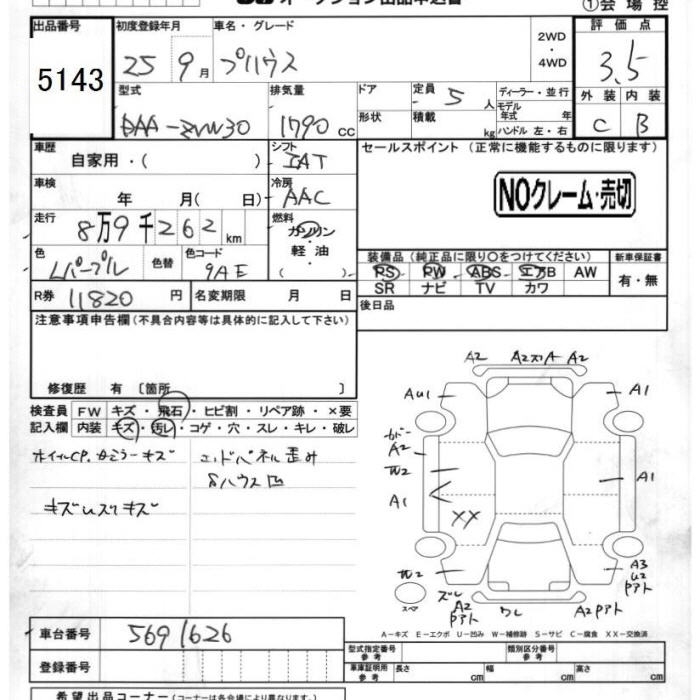 オークション出品申込書
①会場控
出品番号
5143
初度登録年月
25 9月
車名・グレード
プリウス
2WD
・
4WD
評価点
3.5
外装 内装
C B
型式
DAA-ZVW30
排気量
1790 cc
ドア
形状
定員 5 人
積載 kg
ディーラー・並行
モデル年式 年
ハンドル 左・右
車歴
自家用・( )
シフト
IAT
セールスポイント (正常に機能するものに限ります)
NOクレーム・売切
車検
年 月( 日)
冷房
AAC
走行
8万9千262km
燃料
ガソリン
軽油
( )
色
Lパープル
色替
色コード
9AE
装備品(純正品に限り〇をつけてください)
PS PW ABS エアB AW
SR ナビ TV カワ
新車保証書
有・無
R券 11820 円
名変期限 月 日
後日品
注意事項申告欄(不具合内容等は具体的に記入して下さい)
修復歴 有 〔箇所 〕
検査員
記入欄
FW キズ・飛石・ヒビ割・リペア跡・×要
内装 キズ・汚レ・コゲ・穴・スレ・キレ・破レ
エンドパネル歪み
キズ
A2 A2 A A2
AU1 A1
A2
W2
A1
A1
XX
W2
A3
U2
Pアト
スペア
ズレ
A2
Pアト
ワレ
A2 Pアト
A－キズ E－エクボ U－凹み W－補修跡 S－サビ C－腐食 XX－交換済
車台番号 5691626
登録番号
型式指定番号
参考
類別区分番号
参考
車庫証明用
参考
長さ cm 幅 cm 高さ cm
希望出品コーナー(コーナーは各会場により異なります。)